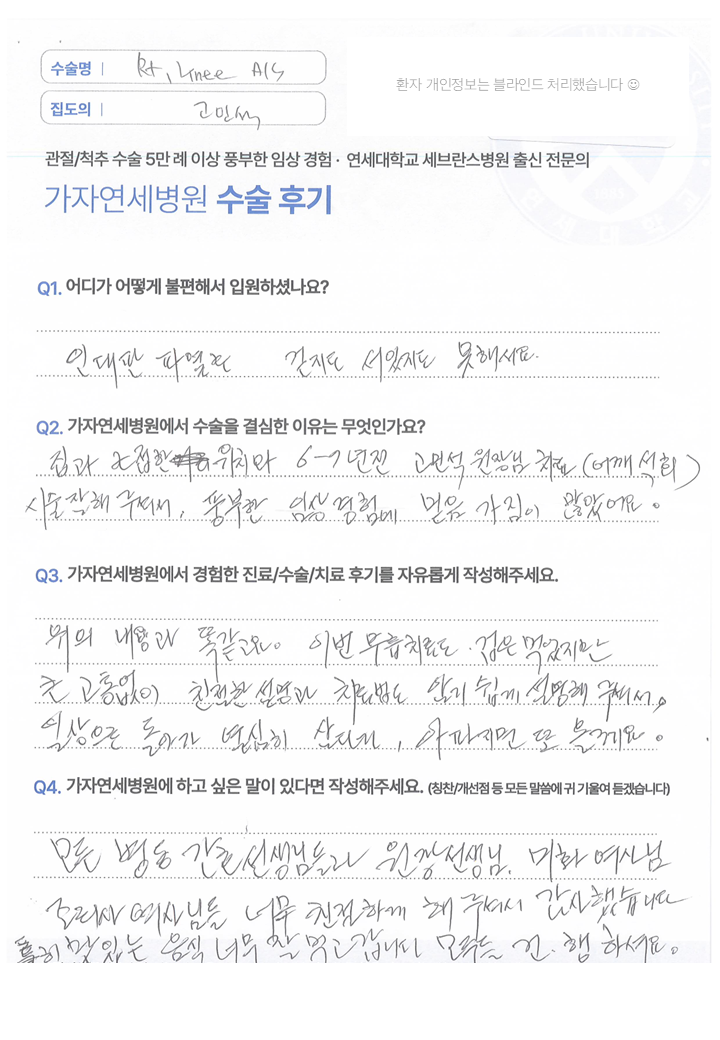 수술명 | Rt. knee A/S
환자 개인정보는 블라인드 처리했습니다 ☺
집도의 | 고민석
관절/척추 수술 5만 례 이상 풍부한 임상 경험 · 연세대학교 세브란스병원 출신 전문의
가자연세병원 수술 후기
Q1. 어디가 어떻게 불편해서 입원하셨나요?
인대판 파열로 걷지도 서있지도 못해서요.
Q2. 가자연세병원에서 수술을 결심한 이유는 무엇인가요?
집과 근접한 위치와 6-7년전 고민석 원장님 치료 (어깨 석회)
시술 잘해 주셔서, 풍부한 임상경험에 믿음 가짐이 많았어요.
Q3. 가자연세병원에서 경험한 진료/수술/치료 후기를 자유롭게 작성해주세요.
위의 내용과 똑같고요. 이번 무릎치료도 겁은 먹었지만
큰 고통없이 친절한 설명과 치료법도 알기 쉽게 설명해 주셔서,
일상으로 돌아가 열심히 살다가, 아파지면 또 올게요.
Q4. 가자연세병원에 하고 싶은 말이 있다면 작성해주세요. (칭찬/개선점 등 모든 말씀에 귀 기울여 듣겠습니다)
모든 병동 간호선생님들과 원장선생님. 미화 여사님
조리사 여사님들 너무 친절하게 해 주셔서 감사했습니다
특히 맛있는 음식 너무 잘 먹고 갑니다 모두들 건.행 하셔요.